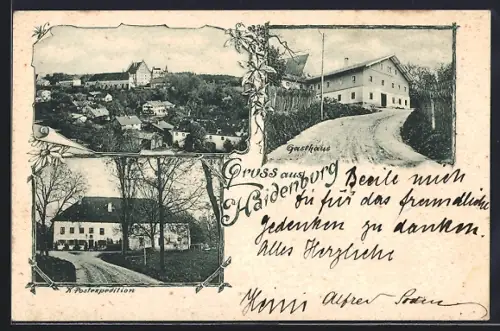 Gruss aus
Haidenburg
Gasthaus
K. Postexpedition
Beeile mich
für das freundliche
Gedenken zu danken.
Alles Herzliche
Alfred